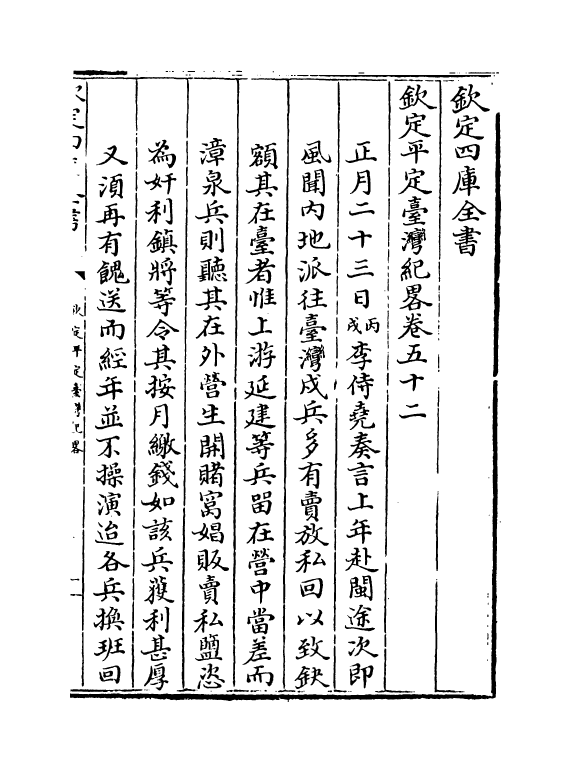 欽定四庫全書
欽定平定臺灣紀畧卷五十二
正月二十三日丙戌李侍堯奏言上年赴閩途次即
風聞内地派往臺灣戍兵多有賣放私回以致缺
額其在臺者惟上游延建等兵留在營中當差而
漳泉兵則聽其在外營生開賭窩娼販賣私鹽恣
為奸利鎮將等令其按月繳錢如該兵獲利甚厚
又須再有餽送而經年並不操演迨各兵換班回
欽定平定臺灣紀畧